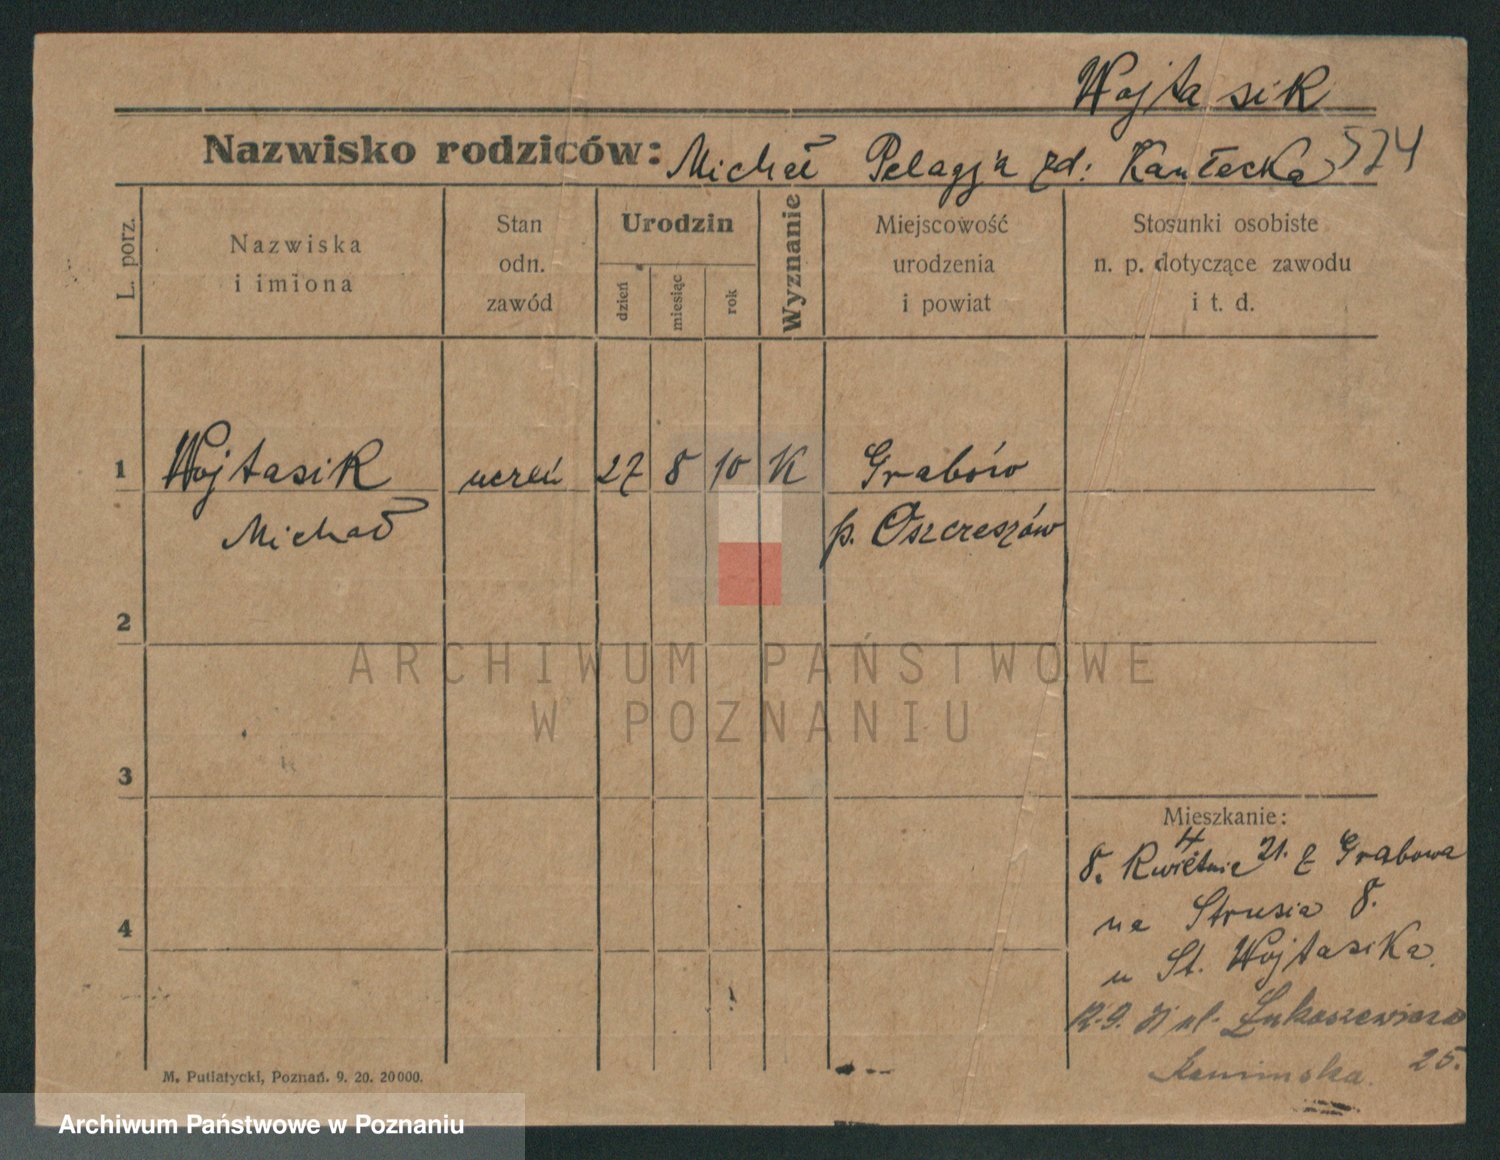 Wojtasik
Nazwisko rodziców: Michał Pelagja zd: Kantecka 574
L. porz.
Nazwiska
i imiona
Stan
odn.
zawód
Urodzin
dzień
miesiąc
rok
Wyznanie
Miejscowość
urodzenia
i powiat
Stosunki osobiste
n. p. dotyczące zawodu
i t. d.
1 Wojtasik uczeń 27 8 10 K Grabów
Michał p. Oszczeszów
2
3
4
Mieszkanie:
8. 4 Kwietnie 21. z Grabowa
na Strusia 8.
u St. Wojtasika.
12.9. 21 ul. Łukaszewicza
25.
Kaminska.
M. Putiatycki, Poznań. 9. 20. 20000.
ARCHIWUM PAŃSTWOWE
W POZNANIU
Archiwum Państwowe w Poznaniu